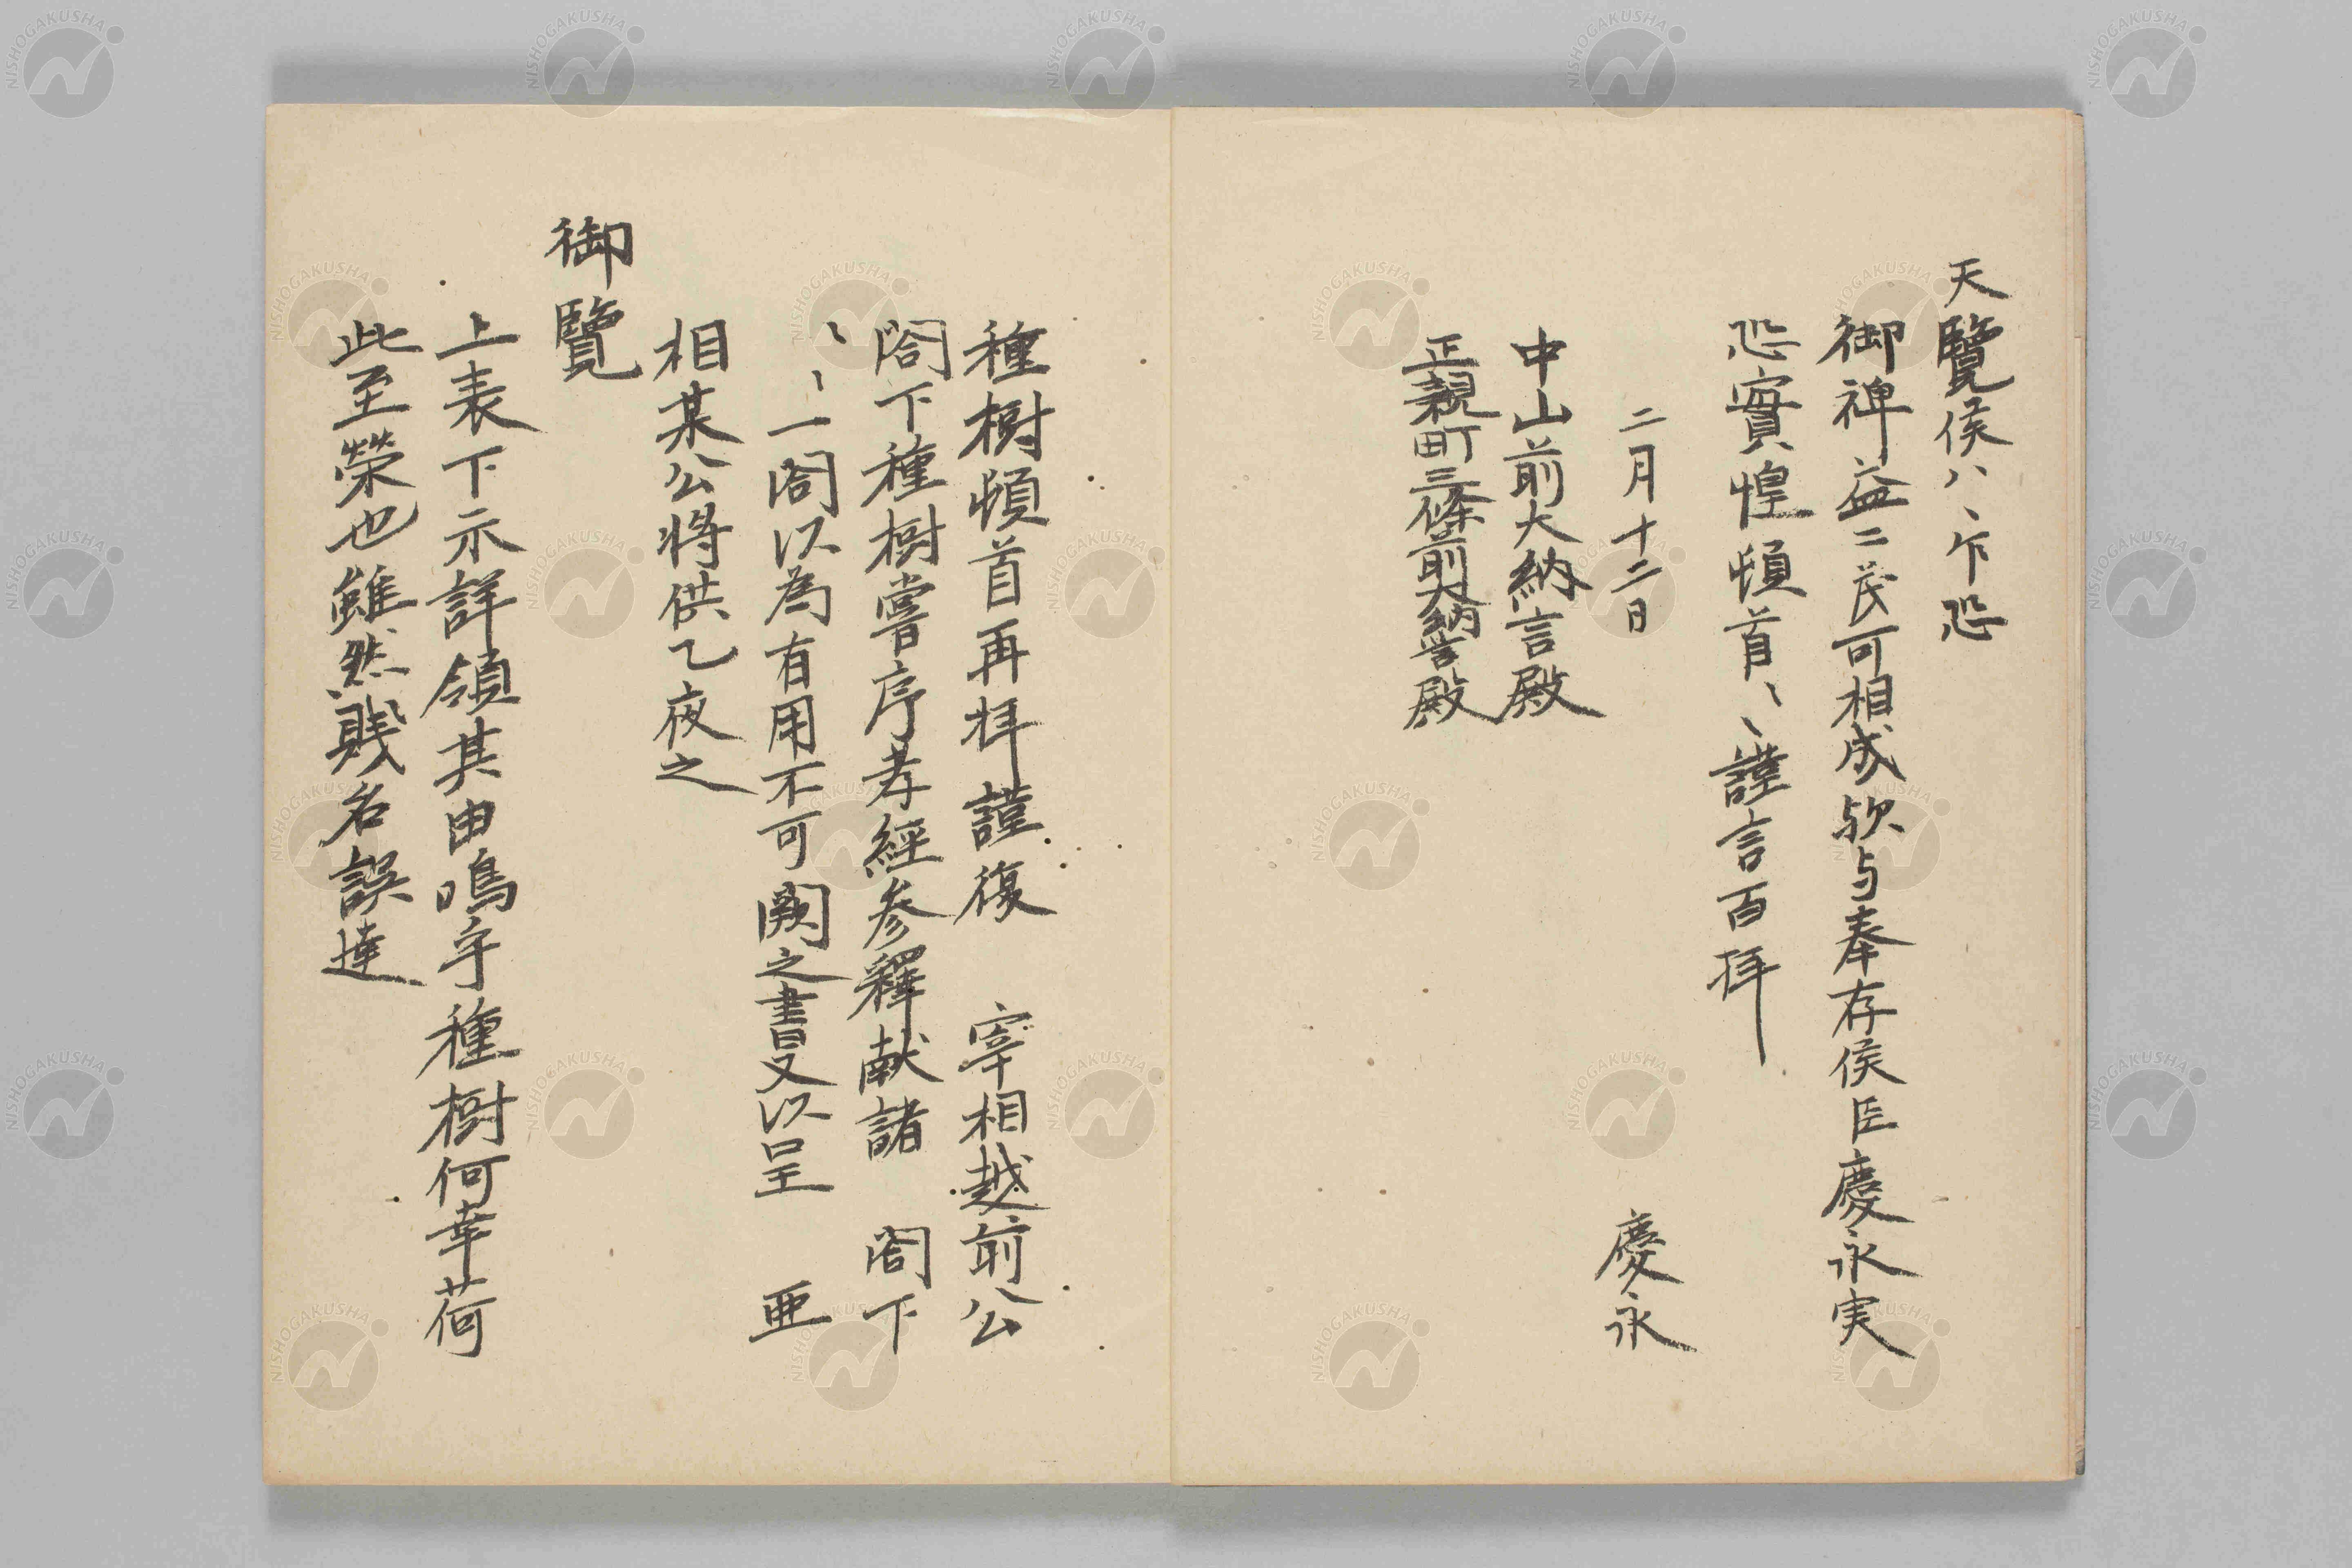 天覽侯ハヽ乍恐
御裨益ニ茂可相成欤与奉存侯臣慶永実
恐實惶頓首ヽヽ謹言百拜
二月十二日
慶永
中山前大納言殿
正親町三條前大納言殿
種樹頓首再拜謹復 宰相越前公
閤下種樹嘗序孝經参釋献諸 閤下
ヽヽ一閤以為有用不可闕之書又以呈 亜
相某公将供乙夜之
御覽
上表下示詳領其由嗚乎種樹何幸荷
此至榮也雖然賤名誤達
NISHOGAKUSHA